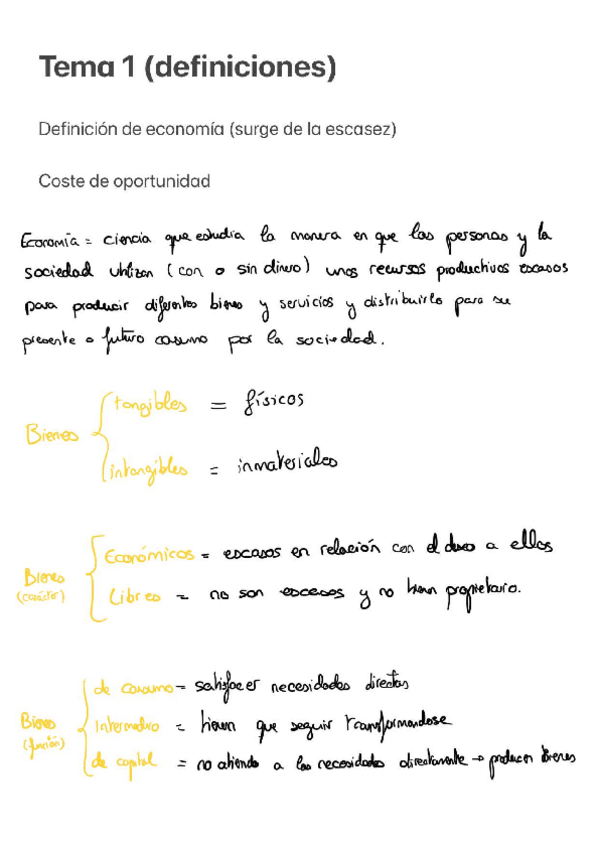 Tema 1 (definiciones)
Definición de economía (surge de la escasez)
Coste de oportunidad
Economía = ciencia que estudia la manera en que las personas y la
sociedad utilizan (con o sin dinero) unos recursos productivos escasos
para producir diferentes bienes y servicios y distribuirlo para su
presente o futuro consumo por la sociedad.
Bienes
tangibles = físicos
intangibles = inmateriales
Bienes (carácter)
Económicos = escasos en relación con el deseo a ellos
Libres = no son escasos y no tienen propietario.
Bienes (función)
de consumo = satisfacer necesidades directas
Intermedio = tienen que seguir transformandose
de capital = no atiende a las necesidades directamente → producen bienes